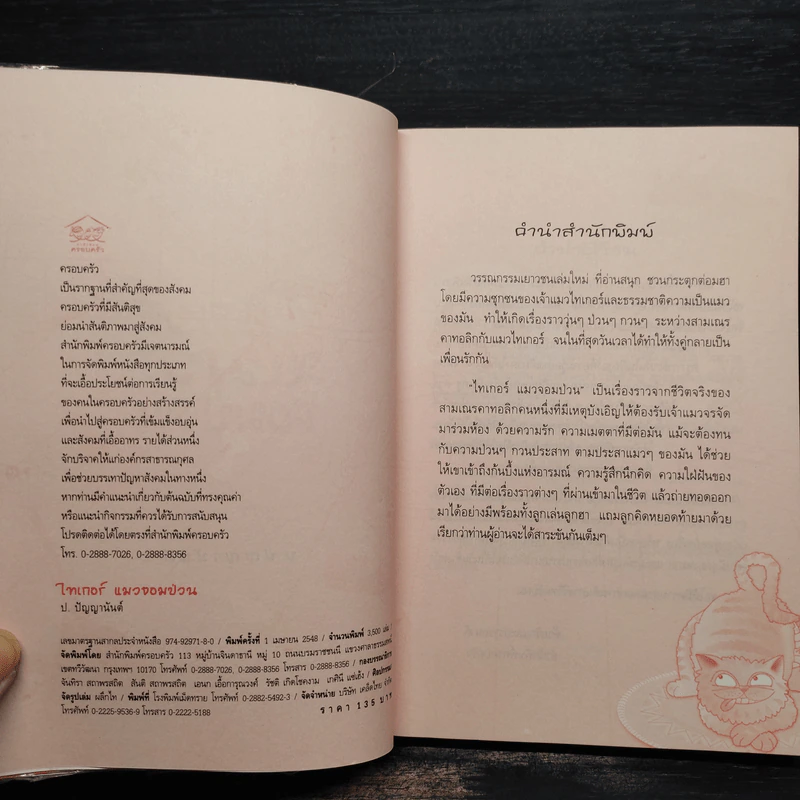 ครอบครัว
ครอบครัว
เป็นรากฐานที่สำคัญที่สุดของสังคม
ครอบครัวที่มีสันติสุข
ย่อมนำสันติภาพมาสู่สังคม
สำนักพิมพ์ครอบครัวมีเจตนารมณ์
ในการจัดพิมพ์หนังสือทุกประเภท
ที่จะเอื้อประโยชน์ต่อการเรียนรู้
ของคนในครอบครัวอย่างสร้างสรรค์
เพื่อนำไปสู่ครอบครัวที่เข้มแข็งอบอุ่น
และสังคมที่เอื้ออาทร รายได้ส่วนหนึ่ง
จักบริจาคให้แก่องค์กรสาธารณกุศล
เพื่อช่วยบรรเทาปัญหาสังคมในทางหนึ่ง
หากท่านมีคำแนะนำเกี่ยวกับต้นฉบับที่ทรงคุณค่า
หรือแนะนำกิจกรรมที่ควรได้รับการสนับสนุน
โปรดติดต่อได้โดยตรงที่สำนักพิมพ์ครอบครัว
โทร. 0-2888-7026, 0-2888-8356
ไทเกอร์ แมวจอมป่วน
ป. ปัญญานันต์
เลขมาตรฐานสากลประจำหนังสือ 974-92971-8-0 / พิมพ์ครั้งที่ 1 เมษายน 2548 / จำนวนพิมพ์ 3,500 เล่ม /
จัดพิมพ์โดย สำนักพิมพ์ครอบครัว 113 หมู่บ้านจินดาธานี หมู่ 10 ถนนบรมราชชนนี แขวงศาลาธรรมสพน์
เขตทวีวัฒนา กรุงเทพฯ 10170 โทรศัพท์ 0-2888-7026, 0-2888-8356 โทรสาร 0-2888-8356 / กองบรรณาธิการ
จันทิรา สถาพรสถิต สันติ สถาพรสถิต เอนก เอื้อการุณวงศ์ รัชติ เกิดโชคงาม เกศินี แซ่เฮ้ง / ศิลปกรรมและ
จัดรูปเล่ม ผลึกใท / พิมพ์ที่ โรงพิมพ์เม็ดทราย โทรศัพท์ 0-2882-5492-3 / จัดจำหน่าย บริษัท เคล็ดไทย จำกัด
โทรศัพท์ 0-2225-9536-9 โทรสาร 0-2222-5188
ราคา 135 บาท
คำนำสำนักพิมพ์
วรรณกรรมเยาวชนเล่มใหม่ ที่อ่านสนุก ชวนกระตุกต่อมฮา
โดยมีความซุกซนของเจ้าแมวไทเกอร์และธรรมชาติความเป็นแมว
ของมัน ทำให้เกิดเรื่องราววุ่นๆ ป่วนๆ กวนๆ ระหว่างสามเณร
คาทอลิกกับแมวไทเกอร์ จนในที่สุดวันเวลาได้ทำให้ทั้งคู่กลายเป็น
เพื่อนรักกัน
"ไทเกอร์ แมวจอมป่วน" เป็นเรื่องราวจากชีวิตจริงของ
สามเณรคาทอลิกคนหนึ่งที่มีเหตุบังเอิญให้ต้องรับเจ้าแมวจรจัด
มาร่วมห้อง ด้วยความรัก ความเมตตาที่มีต่อมัน แม้จะต้องทน
กับความป่วนๆ กวนประสาท ตามประสาแมวๆ ของมัน ได้ช่วย
ให้เขาเข้าถึงก้นบึ้งแห่งอารมณ์ ความรู้สึกนึกคิด ความใฝ่ฝันของ
ตัวเอง ที่มีต่อเรื่องราวต่างๆ ที่ผ่านเข้ามาในชีวิต แล้วถ่ายทอดออก
มาได้อย่างมีพร้อมทั้งลูกเล่นลูกฮา แถมลูกคิดหยอดท้ายมาด้วย
เรียกว่าท่านผู้อ่านจะได้สาระขันกันเต็มๆ